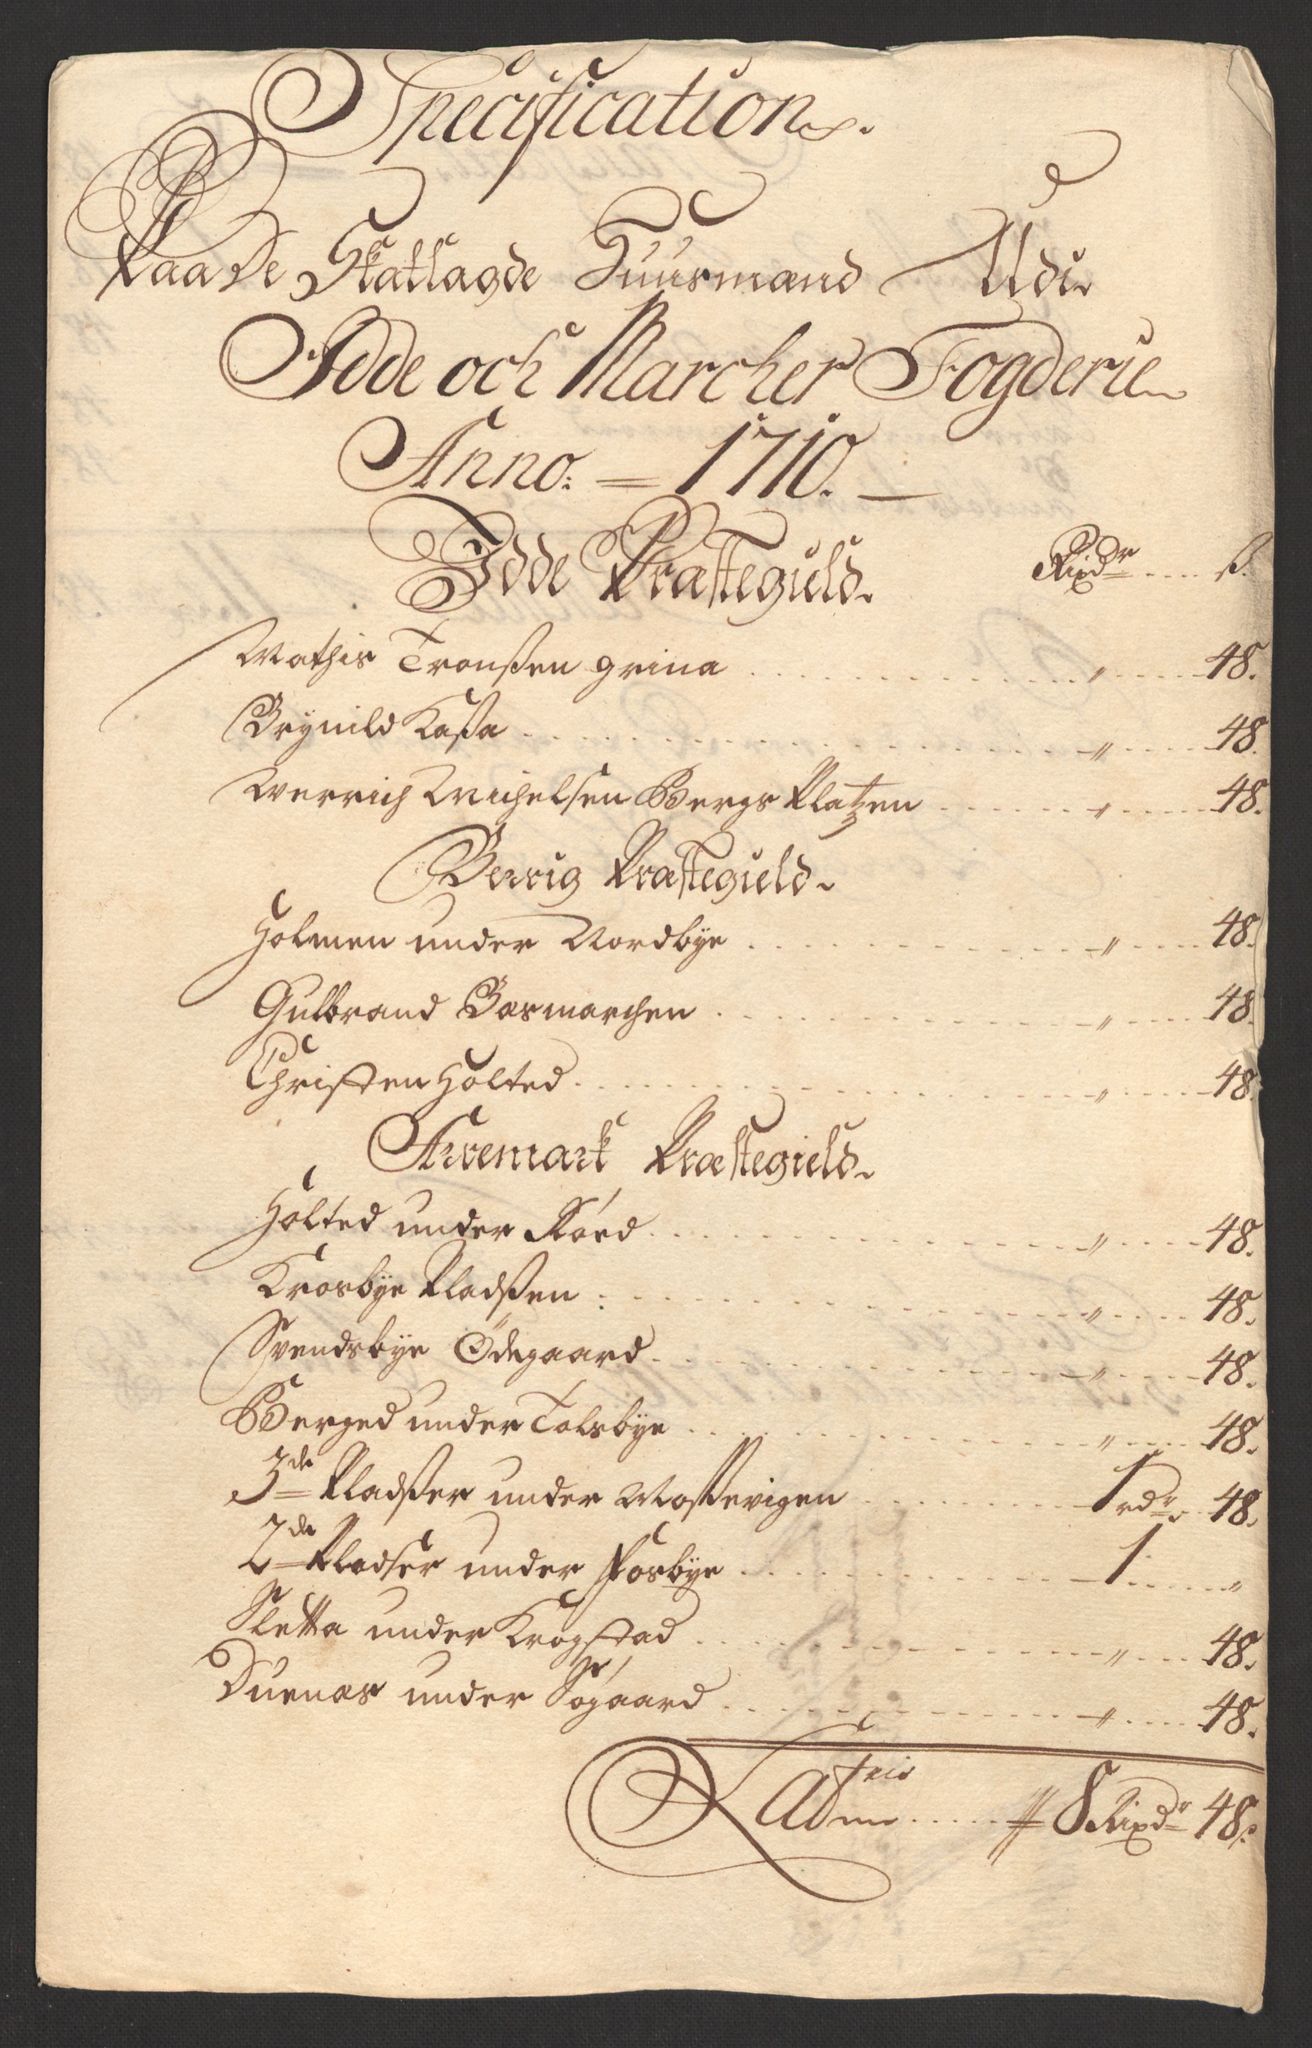 Specification
Paa De Skatlagde Huusmænd Udi
Idde och Marcher Fogderie
Anno. = 1710. —
Idde Præstegield. Rixdr ß.
Mathis Tronßen grina 〃 48.
Brynild Kaßa 〃 48.
Werrich Michelsen Bergs Platzen 〃 48.
Berrig Præstegield.
Holmen under Nordbye 〃 48.
Gulbrand Basmarchen 〃 48.
Christen Holted 〃 48.
Arremark Præstegield.
Holted under Kiøed 〃 48.
Krosbye Pladßen 〃 48.
Svendsbye Ødegaard 〃 48.
Berged under Tolsbye 〃 48.
3de Pladßer under Moßevigen 1 rdr 48.
2de Pladser under Fosbye 1 〃
Sletta under Krogstad 〃 48.
Duenæs under Søgaard 〃 48.
Latris 8 Rixdr 48 ß.